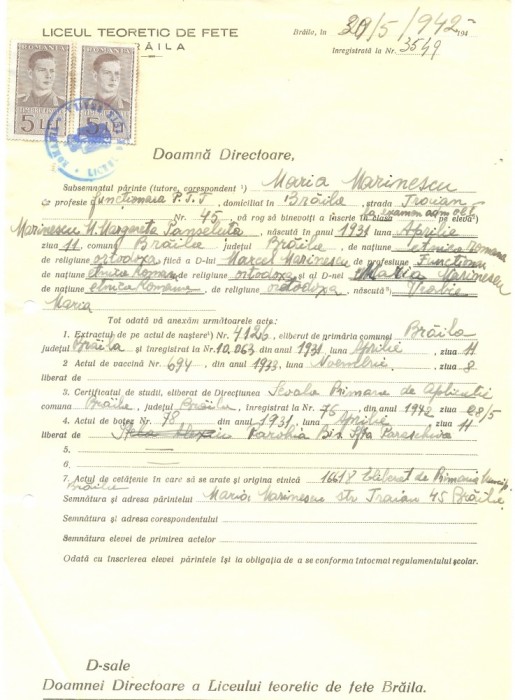 LICEUL TEORETIC DE FETE
BRĂILA
Brăila, in 29/5/942 194
Inregistrată la Nr. 3549
ROMANIA ROMANIA
5 LEI 5 L
Doamnă Directoare,
Subsemnatul părinte (tutore, corespondent ¹) Maria Marinescu
de profesie funcționara P.T.T, domiciliat în Brăila, strada Traian
Nr. 45, vă rog să binevoiți a înscrie în clasa la examen adm. pe eleva ²)
Marinescu M. Margareta Panseluta, născută în anul 1931 luna Aprilie
ziua 11 comuna Brăila județul Brăila, de națiune etnica romana
de religiune ortodoxa fiică a D-lui Marcel Marinescu de profesiune Functionar
de națiune etnica Romana de religiune ortodoxa și al D-nei Maria Marinescu
de națiune etnica Romana, de religiune ortodoxa, născută ³) Vrabie
Maria
Tot odată vă anexăm următoarele acte:
1. Extractul de pe actul de naștere ⁴) Nr. 4126, eliberat de primăria comunei Brăila
județul Brăila și înregistrat la Nr. 10.063 din anul 1931 luna Aprilie, ziua 11
2 Actul de vaccină Nr 694, din anul 1933, luna Noembrie, ziua 8
liberat de
3. Certificatul de studii, eliberat de Direcțiunea Scoala Primara de Aplicatie
comuna Braila, județul Brăila, înregistrat la Nr. 76, din anul 1942 ziua 28/5
4. Actul de botez Nr. 78, din anul 1931, luna Aprilie, ziua 11
liberat de Parohia Bis. Sfta Paraschiva
5.
6.
7. Actul de cetățenie în care să se arate și origina etnică 16618 Eliberat de Primaria
Brăila
Semnătura și adresa părintelui Maria Marinescu str Traian 45 Brăila
Semnătura și adresa corespondentului
Semnătura elevei de primirea actelor
Odată cu înscrierea elevei părintele își la obligația de a se conforma întocmai regulamentului școlar.
D-sale
Doamnei Directoare a Liceului teoretic de fete Brăila.